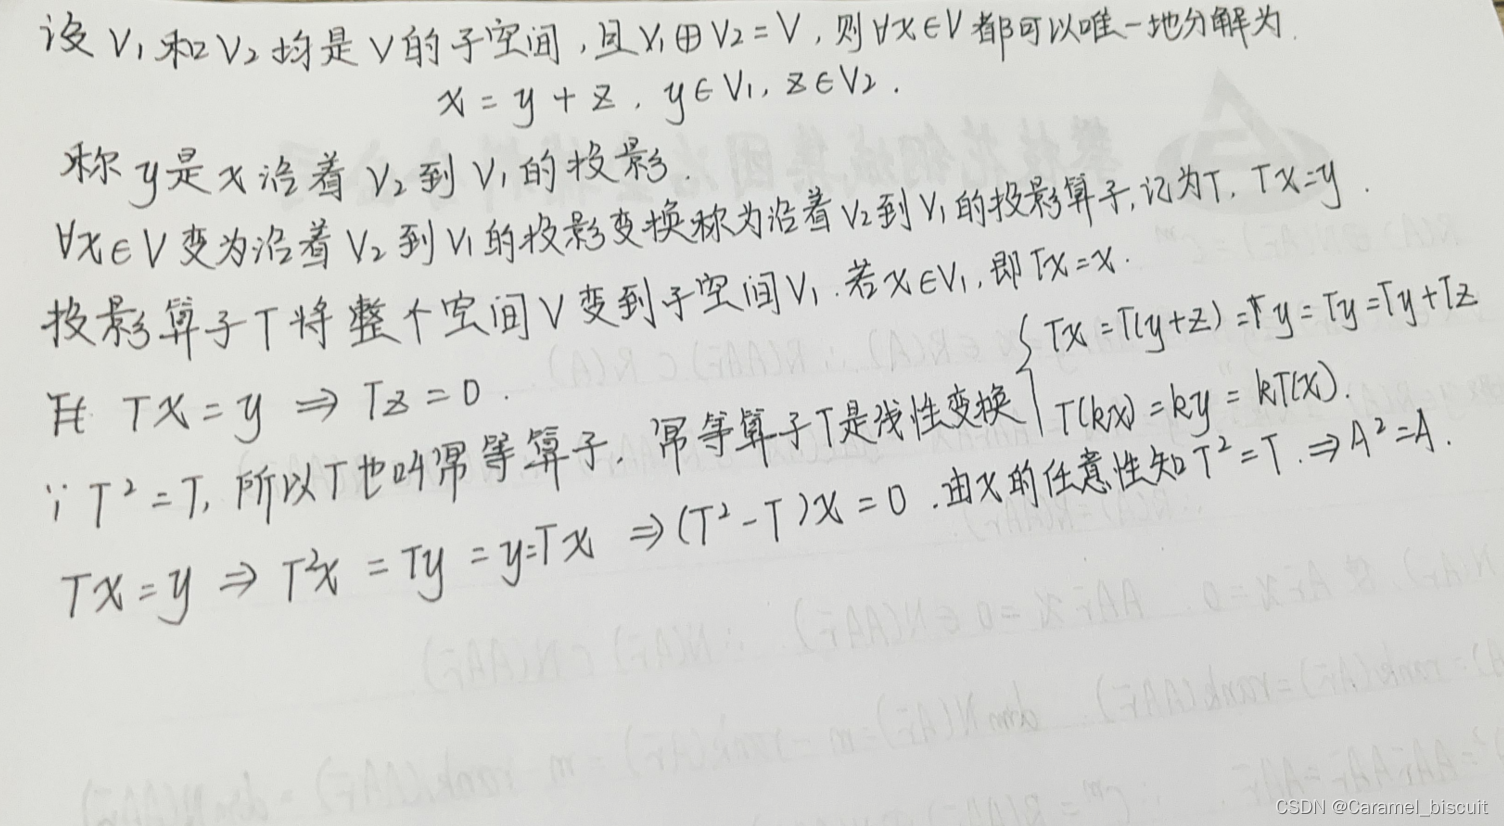 设 V₁ 和 V₂ 均是 V 的子空间,且 V₁⊕V₂=V,则 ∀x∈V 都可以唯一地分解为.
x = y + z . y∈V₁, z∈V₂.
称 y 是 x 沿着 V₂ 到 V₁ 的投影.
∀x∈V 变为沿着 V₂ 到 V₁ 的投影变换称为沿着 V₂ 到 V₁ 的投影算子,记为T, Tx=y .
投影算子 T 将整个空间 V 变到子空间 V₁. 若 x∈V₁, 即 Tx=x.
Tx = y ⇒ Tz = 0 .
∵ T² = T, 所以 T 也叫幂等算子. 幂等算子 T 是线性变换 { Tx = T(y+z) = y = Ty = Ty+Tz
T(kx) = ky = kT(x).
Tx = y ⇒ T²x = Ty = y=Tx ⇒ (T²-T)x = 0 . 由 x 的任意性知 T² = T. ⇒ A²=A.
CSDN @Caramel_biscuit